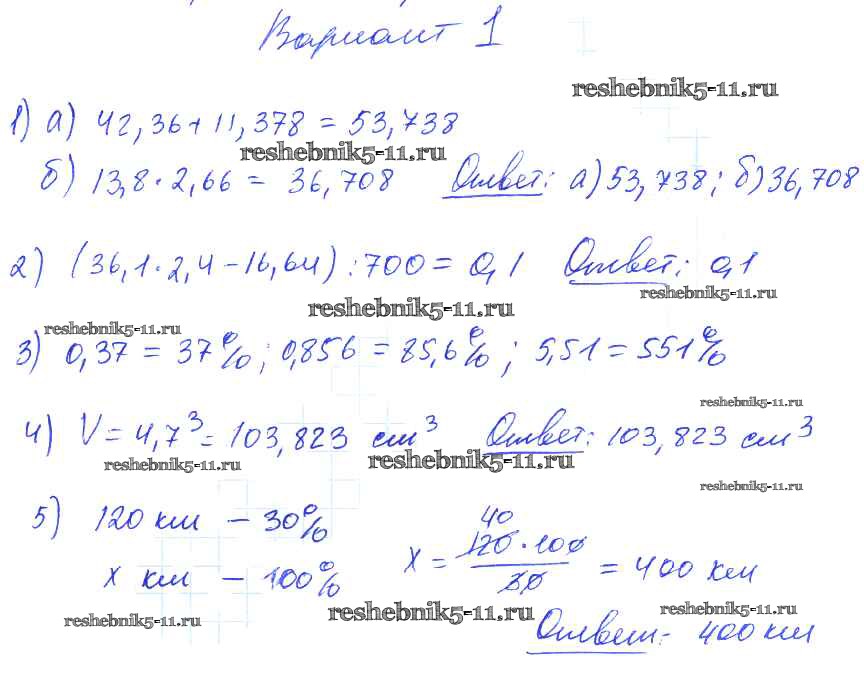 Вариант 1
reshebnik5-11.ru
1) а) 42,36+11,378 = 53,738
reshebnik5-11.ru
б) 13,8·2,66 = 36,708 Ответ: а) 53,738; б) 36,708
2) (36,1·2,4-16,64):700 = 0,1 Ответ: 0,1
reshebnik5-11.ru
reshebnik5-11.ru
reshebnik5-11.ru
3) 0,37 = 37%; 0,856 = 85,6%; 5,51 = 551%
reshebnik5-11.ru
4) V = 4,7³ = 103,823 см³ Ответ: 103,823 см³
reshebnik5-11.ru
reshebnik5-11.ru
reshebnik5-11.ru
5) 120 км - 30%
х км - 100%
40
х = 120·100 / 30 = 400 км
reshebnik5-11.ru
reshebnik5-11.ru
reshebnik5-11.ru
Ответ: 400 км